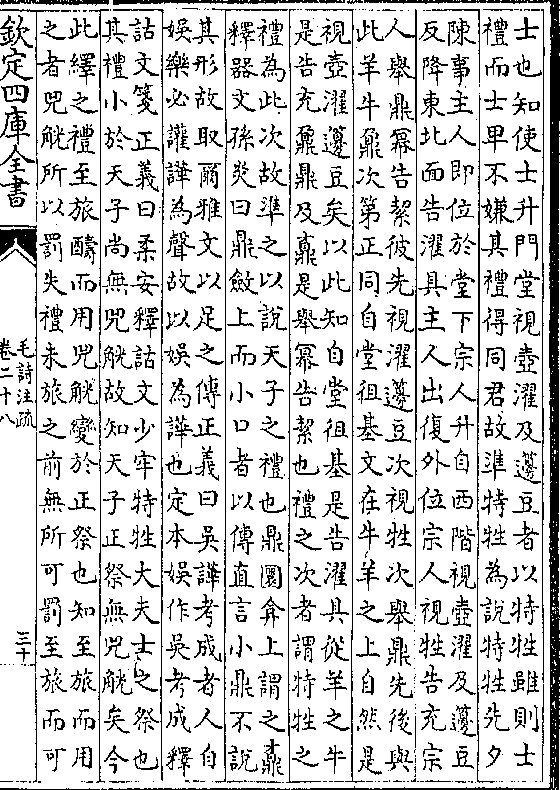 士也知使士升門堂視壺濯及籩豆者以特牲雖則士
禮而士卑不嫌其禮得同君故準特牲為說特牲先夕
陳事主人即位於堂下宗人升自西階視壺濯及籩豆
反降東北面告濯具主人出復外位宗人視牲告充宗
人舉鼎冪告絜彼先視濯籩豆次視牲次舉鼎先後與
此羊牛鼐次第正同自堂徂基文在牛羊之上自然是
視壺濯籩豆矣以此知自堂徂基是告濯具從羊之牛
是告充鼐鼎及鼒是舉冪告絜也禮之次者謂特牲之
禮為此次故準之以說天子之禮也鼎圜弇上謂之鼒
釋器文孫炎曰鼎斂上而小口者以傳直言小鼎不說
其形故取爾雅文以足之傳正義曰吳譁考成者人自
娛樂必讙譁為聲故以娛為譁也定本娛作吳考成釋
詁文箋正義曰柔安釋詁文少牢特牲大夫士之祭也
其禮小於天子尚無兕觥故知天子正祭無兕觥矣今
此繹之禮至旅醻而用兕觥變於正祭也知至旅而用
之者兕觥所以罰失禮未旅之前無所可罰至旅而可
欽定四庫全書
毛詩注疏
卷二十八
三十